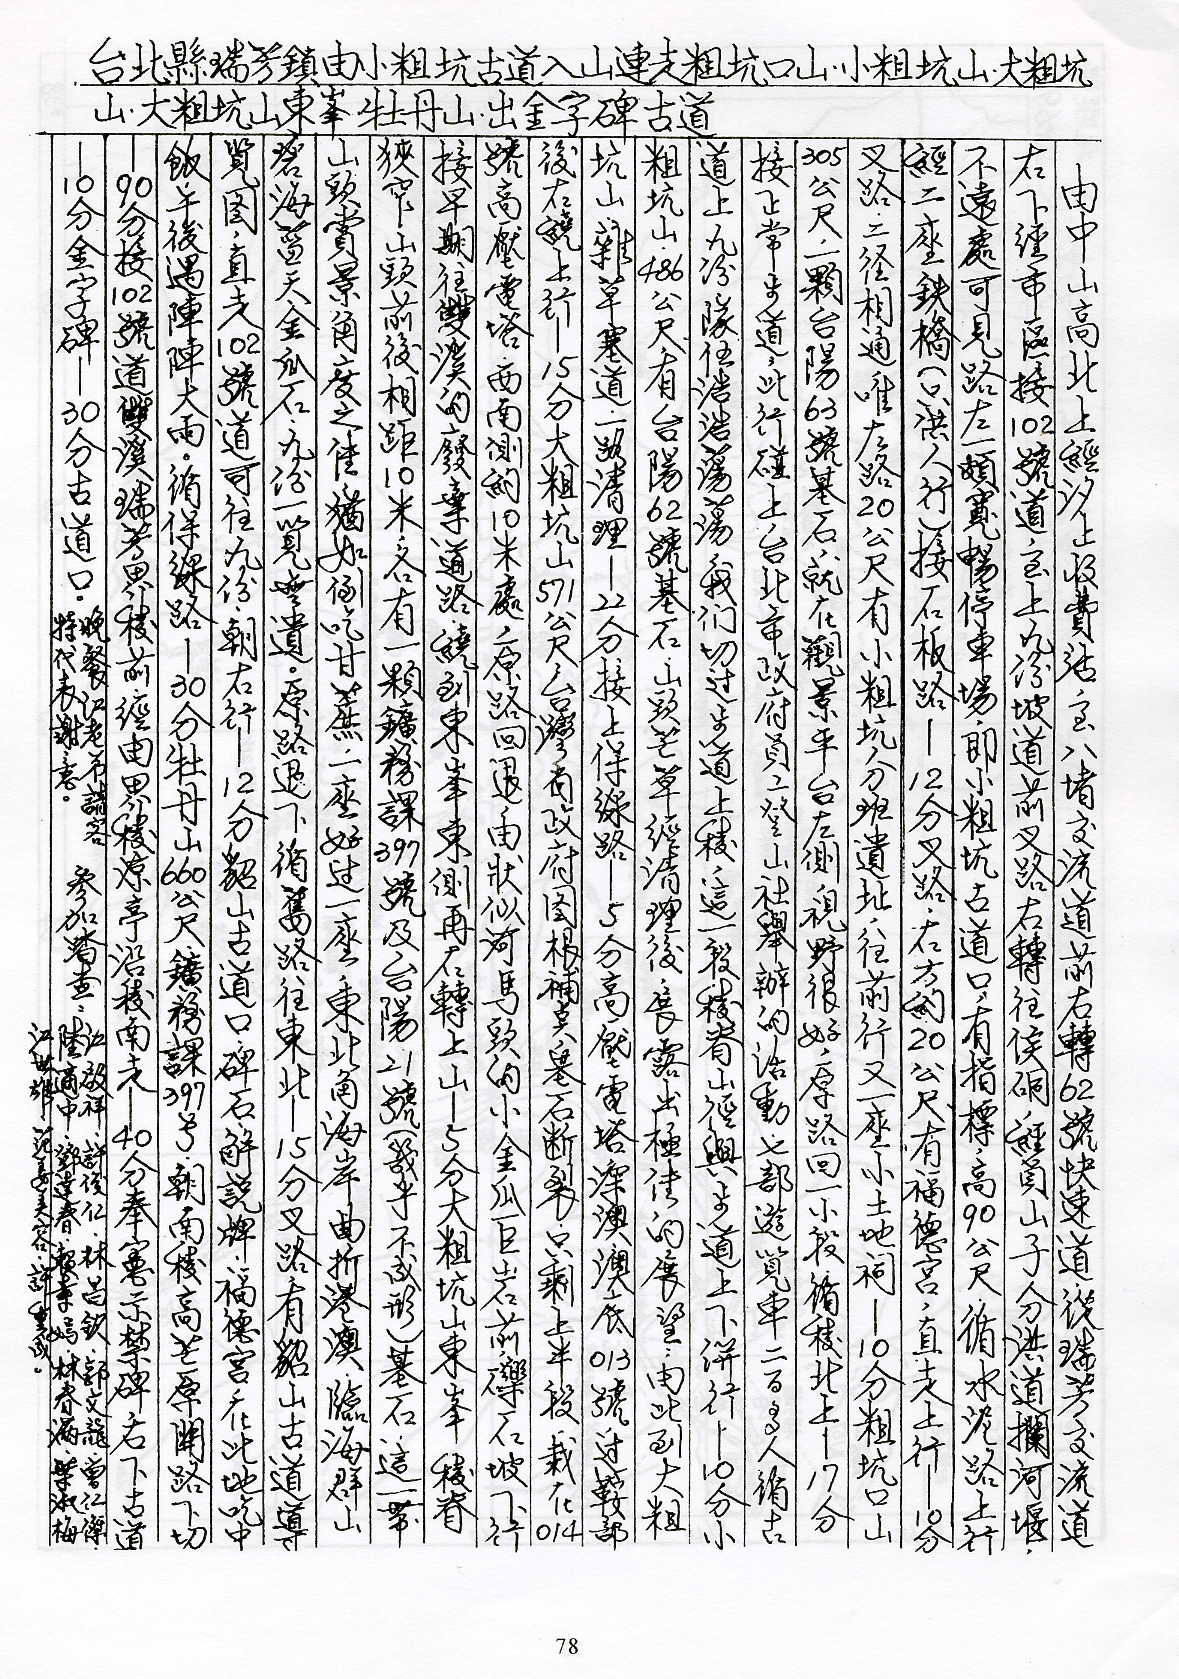 台北縣瑞芳鎮由小粗坑古道入山連走粗坑口山·小粗坑山·大粗坑
山·大粗坑山東峯·牡丹山·出金字碑古道
由中山高北上經汐止收費站·至八堵交流道前右轉62號快速道·從瑞芳交流道
右下經市區接102號道·至上九份坡道前叉路右轉往侯硐·經員山子分洪道攔河堰·
不遠處可見路左一頗寬暢停車場·即小粗坑古道口·有指標·高90公尺·循水泥路上行
經二座鉄橋(只供人行)接石板路—12分叉路·右方約20公尺有福德宮·直走上行—10分
叉路·二径相通唯左路20公尺有小粗坑分班遺址·往前行又一座小土地祠—10分粗坑口山
305公尺·一顆台陽63號基石·就在觀景平台左側視野很好·原路回一小段·循稜北上—17分
接正常步道·此行碰上台北市政府員工登山社舉辦的活動七部遊覽車二百多人循古
道上九份隊伍浩浩蕩蕩·我们切过步道上稜·這一段稜脊山徑與步道上下併行—10分小
粗坑山·486公尺有台陽62號基石·山頭芒草經清理後·展露出極佳的展望·由此到大粗
坑山雜草塞道·一路清理—22分接上保線路—5分高壓電塔深澳澳底013號·过鞍部
後右繞上行—15分大粗坑山571公尺·台灣省政府图根補點·基石断裂·只剩上半段栽在014
號高壓電塔·西南側約10米處·原路回退·由狀似河馬頭的小金瓜巨岩前礫石坡下行
接早期往雙溪的廢棄道路·繞到東峯東側再右轉上山—5分大粗坑山東峯 稜脊
狹窄·山頭前後相距10米·各有一顆鑛務課397號及台陽21號(幾乎不成形)基石·這一帶
山頭賞景角度之佳·猶如倒吃甘蔗·一座好过一座·東北角海岸曲折港澳·臨海群山
碧海藍天金瓜石·九份一覽無遺。原路退下循舊路往東北—15分叉路有貂山古道導
覽图·直走102號道可往九份·朝右行—12分貂山古道口·碑石·解説牌·福德宮·在此地吃中
飯·午後遇陣陣大雨。循保線路—30分牡丹山660公尺·鑛務課397号·朝南稜高芒原開路下切
—90分接102號道雙溪瑞芳界稜前·經由界稜涼亭沿稜南走—40分奉憲示禁碑·右下古道
—10分金字碑—30分古道口。
晚餐江老弟請客
特代表謝意。
參加踏查:江啟祥·許俊仁·林昌欽·郭文龍·曹仁傑·
陸涌中·鄧達春·賴素嫣·林春滿·葉淑梅
江世雄·范姜美容·許
78